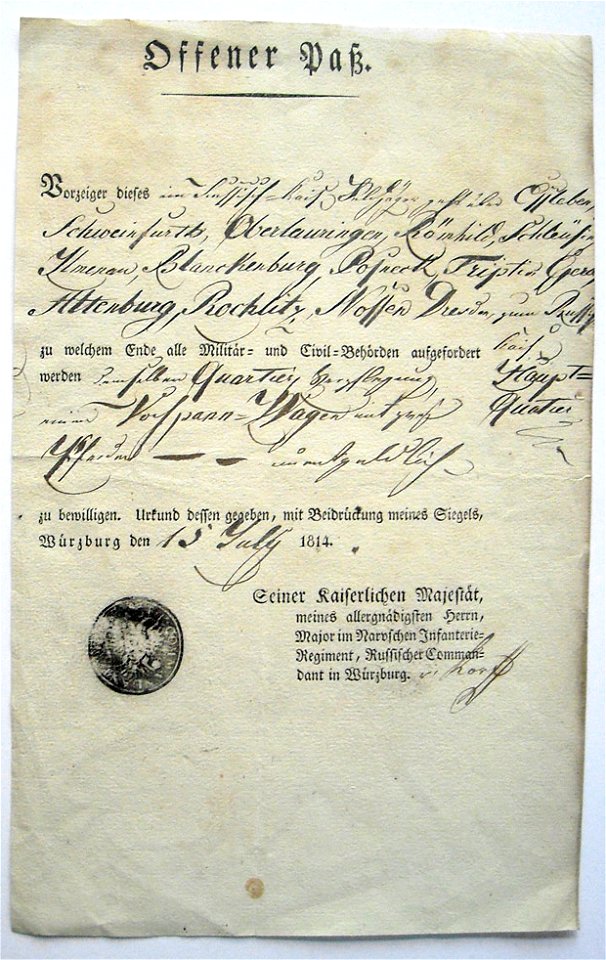 Offener Paß.
Vorzeiger dieses ein Russisch-Kais. Feldjäger geht über Essleben,
Schweinfurth, Oberlauringen, Römhild, Schleusin
Ilmenau, Blanckenburg, Posneck, Triptis, Gera,
Altenburg, Rochlitz, Nossen Dresden, zum Russ.
zu welchem Ende alle Militär- und Civil-Behörden aufgefordert Kais.
werden demselben Quartier, Verpflegung, Haupt-
einen Vorspann-Wagen mit zwei Quatier
Pferden — — unentgeldlich
zu bewilligen. Urkund dessen gegeben, mit Beidrückung meines Siegels,
Würzburg den 15 July 1814.
Seiner Kaiserlichen Majestät,
meines allergnädigsten Herrn,
Major im Narvschen Infanterie-
Regiment, Russischer Comman-
dant in Würzburg. v. Korff